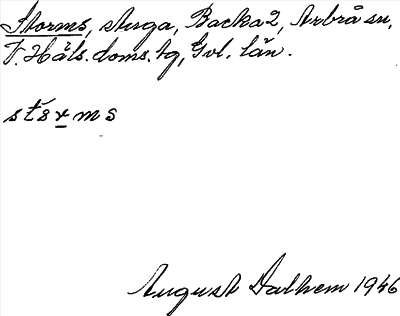 Storms, stuga, Backa 2, Arbrå sn,
V. Häls. doms. tg, Gvl. län.
stårms
August Dalhem 1946